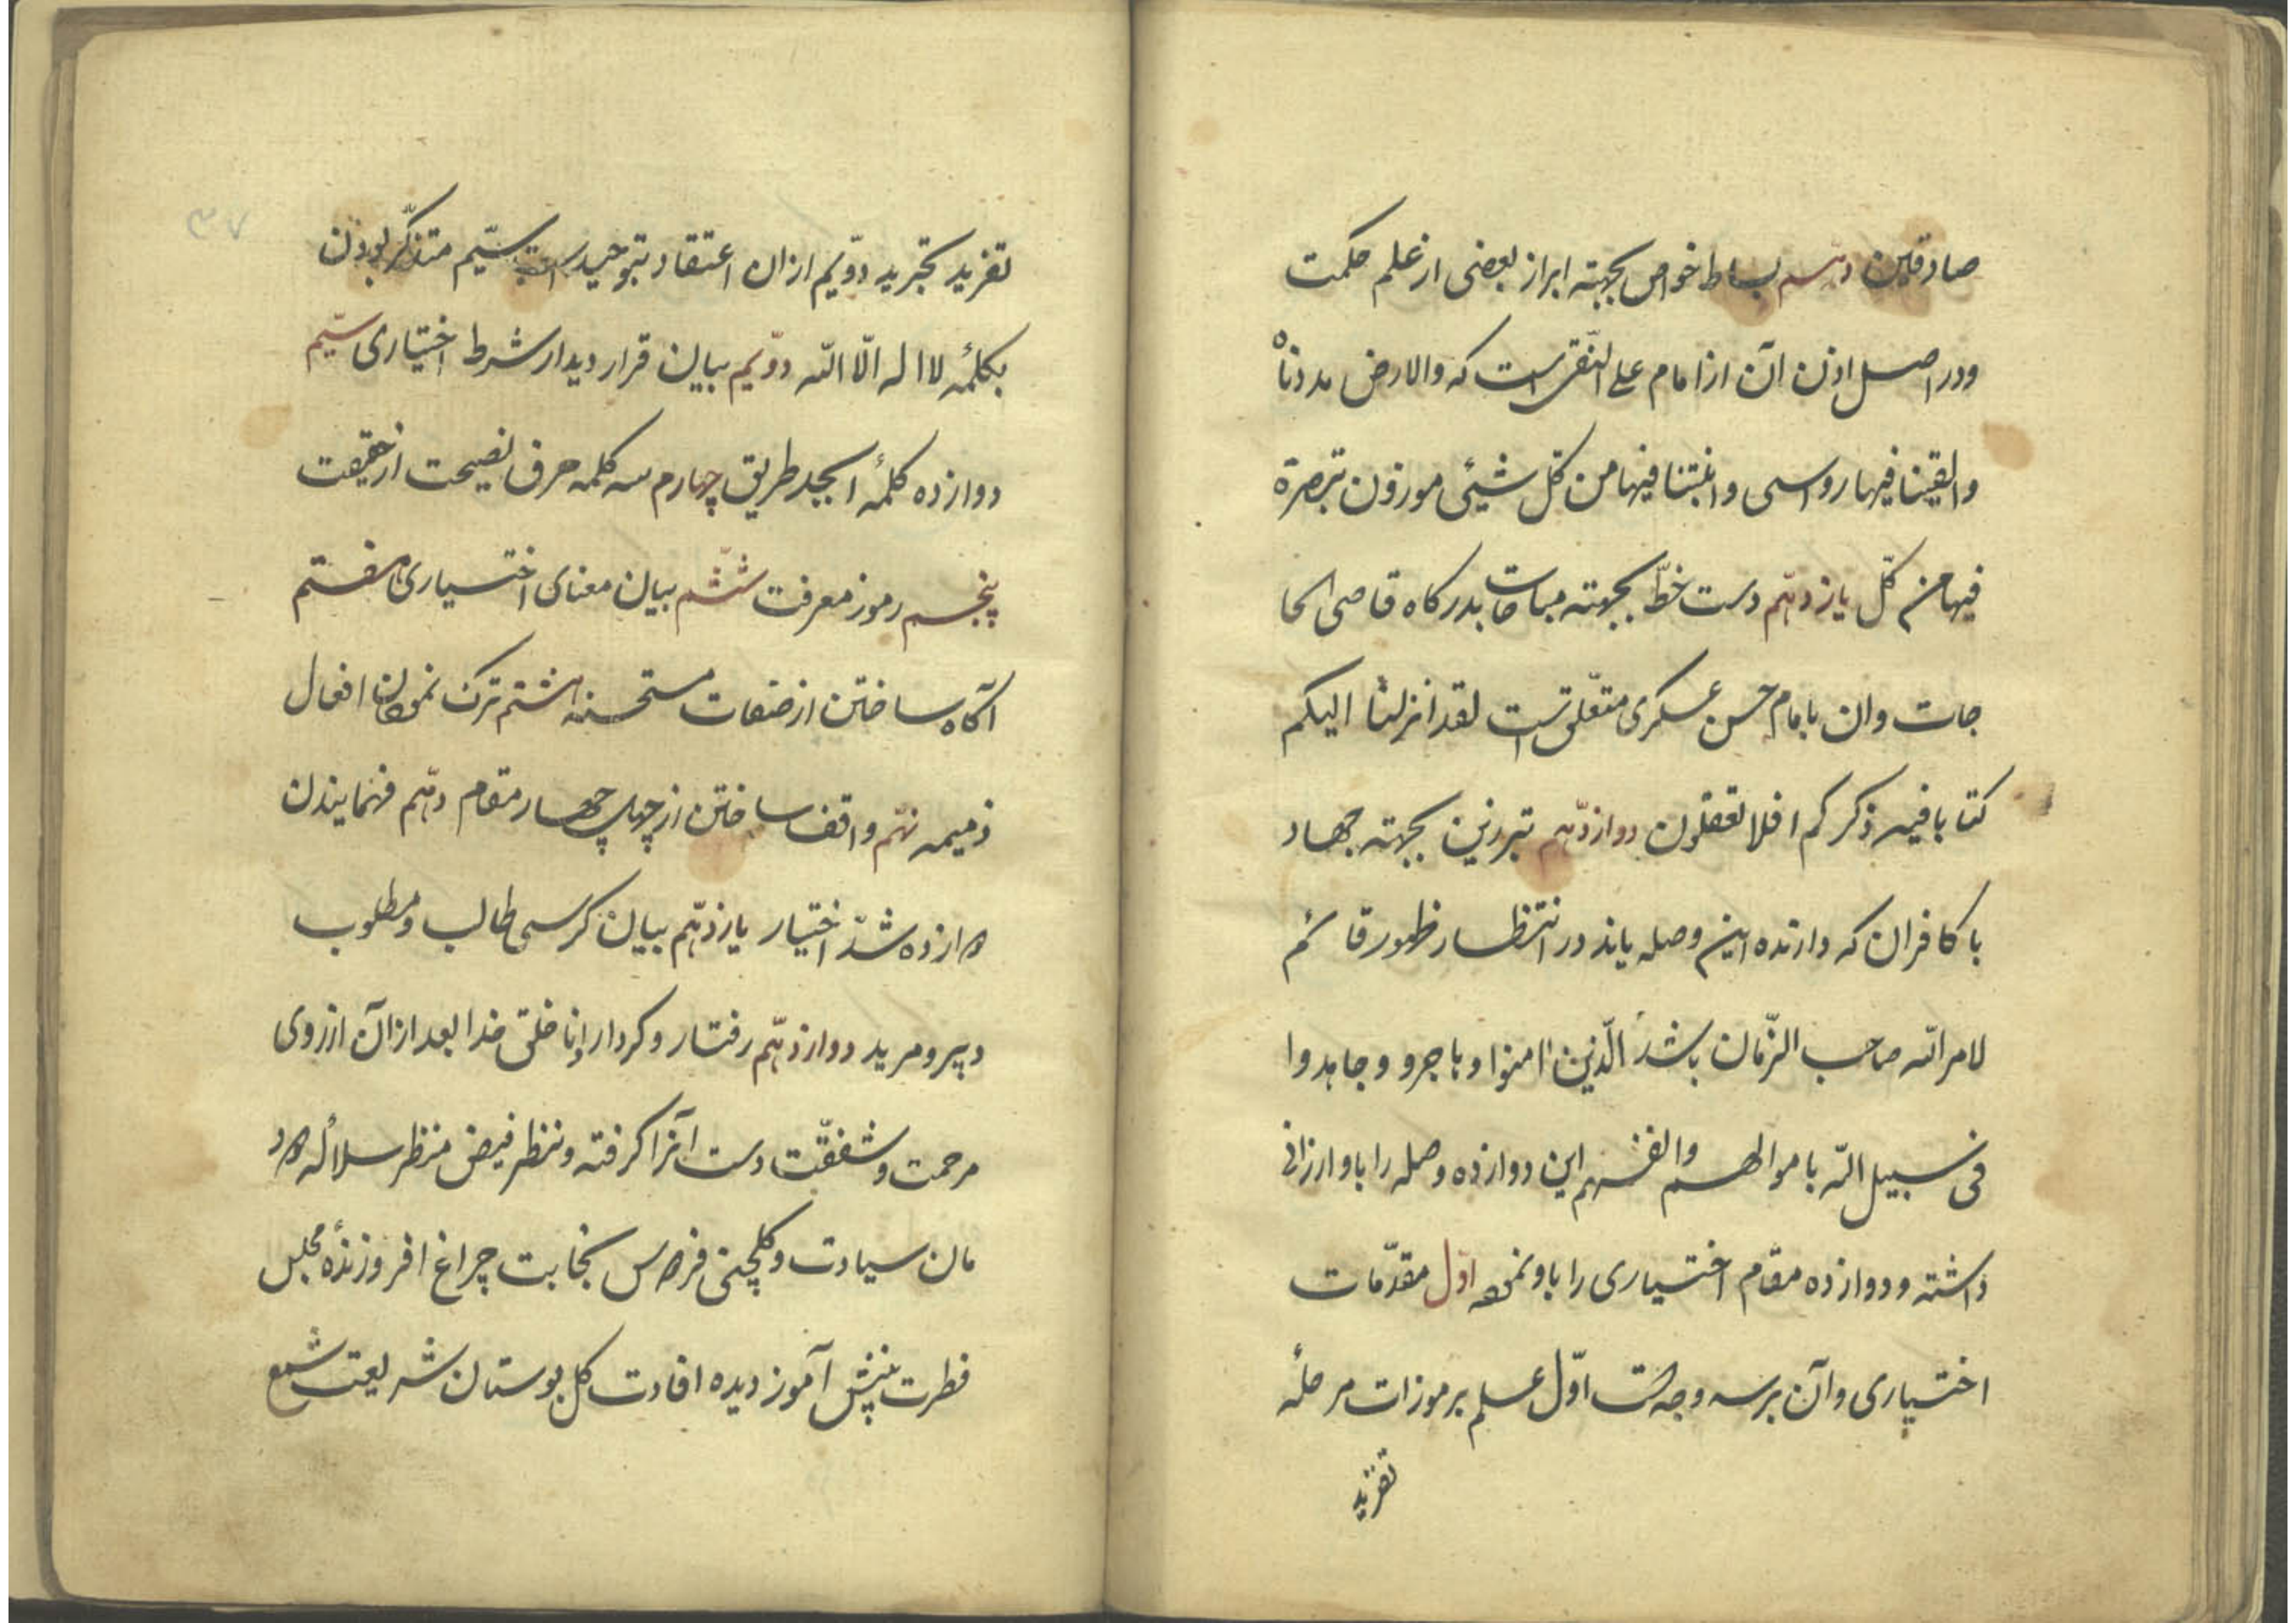 صادقین دهم بساط خواص بجهته ابراز بعضی از علم حکمت
و در اصل اذن آن از امام علی النقی است که والارض مددناه
والقینا فیها رواسی و انبتنا فیها من کل شیئی موزون تبصرة
فیها من کلّ یازدهم دست خطّ بجهته مباحات بدرکاه قاضی الحا
جات وان بامام حسن عسکری متعلّق است لقد انزلنا الیکم
کتابا فیه ذکرکم افلا تعقلون دوازدهم تبرزین بجهته جهاد
با کافران که دارنده این وصله باید در انتظار ظهور قائم
لامر الله صاحب الزّمان باشد الّذین امنوا و هاجرو و جاهدوا
فی سبیل اللّه باموالهم وانفسهم این دوازده وصله را باو ارزانی
داشته و دوازده مقام اختیاری را باو نموده اوّل مقدّمات
اختیاری و آن بر سه وجه است اوّل علم برموزات مرحلهٔ
تفرید
۳۷
تفرید تجرید دوّیم ازان اعتقاد بتوحید است سیّم متذکّر بودن
بکلمهٔ لا اله الّا اللّه دوّیم بیان قرار دیدار شرط اختیاری سیّم
دوازده کلمهٔ ابجد طریق چهارم سه کلمه حرف نصیحت از حقیقت
پنجم رموز معرفت ششم بیان معنای اختیاری هفتم
آکاه ساختن از صفات مستحسنه هشتم ترک نمودن افعال
ذمیمه نهم واقف ساختن از چهل چهار مقام دهم فهمایندن
دوازده شدّ اختیار یازدهم بیان کرسی طالب و مطلوب
و پیر و مرید دوازدهم رفتار و کردار با خلق خدا بعد ازان از روی
مرحمت و شفقّت دست آنرا کرفته و بنظر فیض منظر سلالهٔ دود
مان سیادت و کلچنی فردوس نجابت چراغ افروزندهٔ مجلس
فطرت بینش آموز دیده افادت کل بوستان شریعت شمع